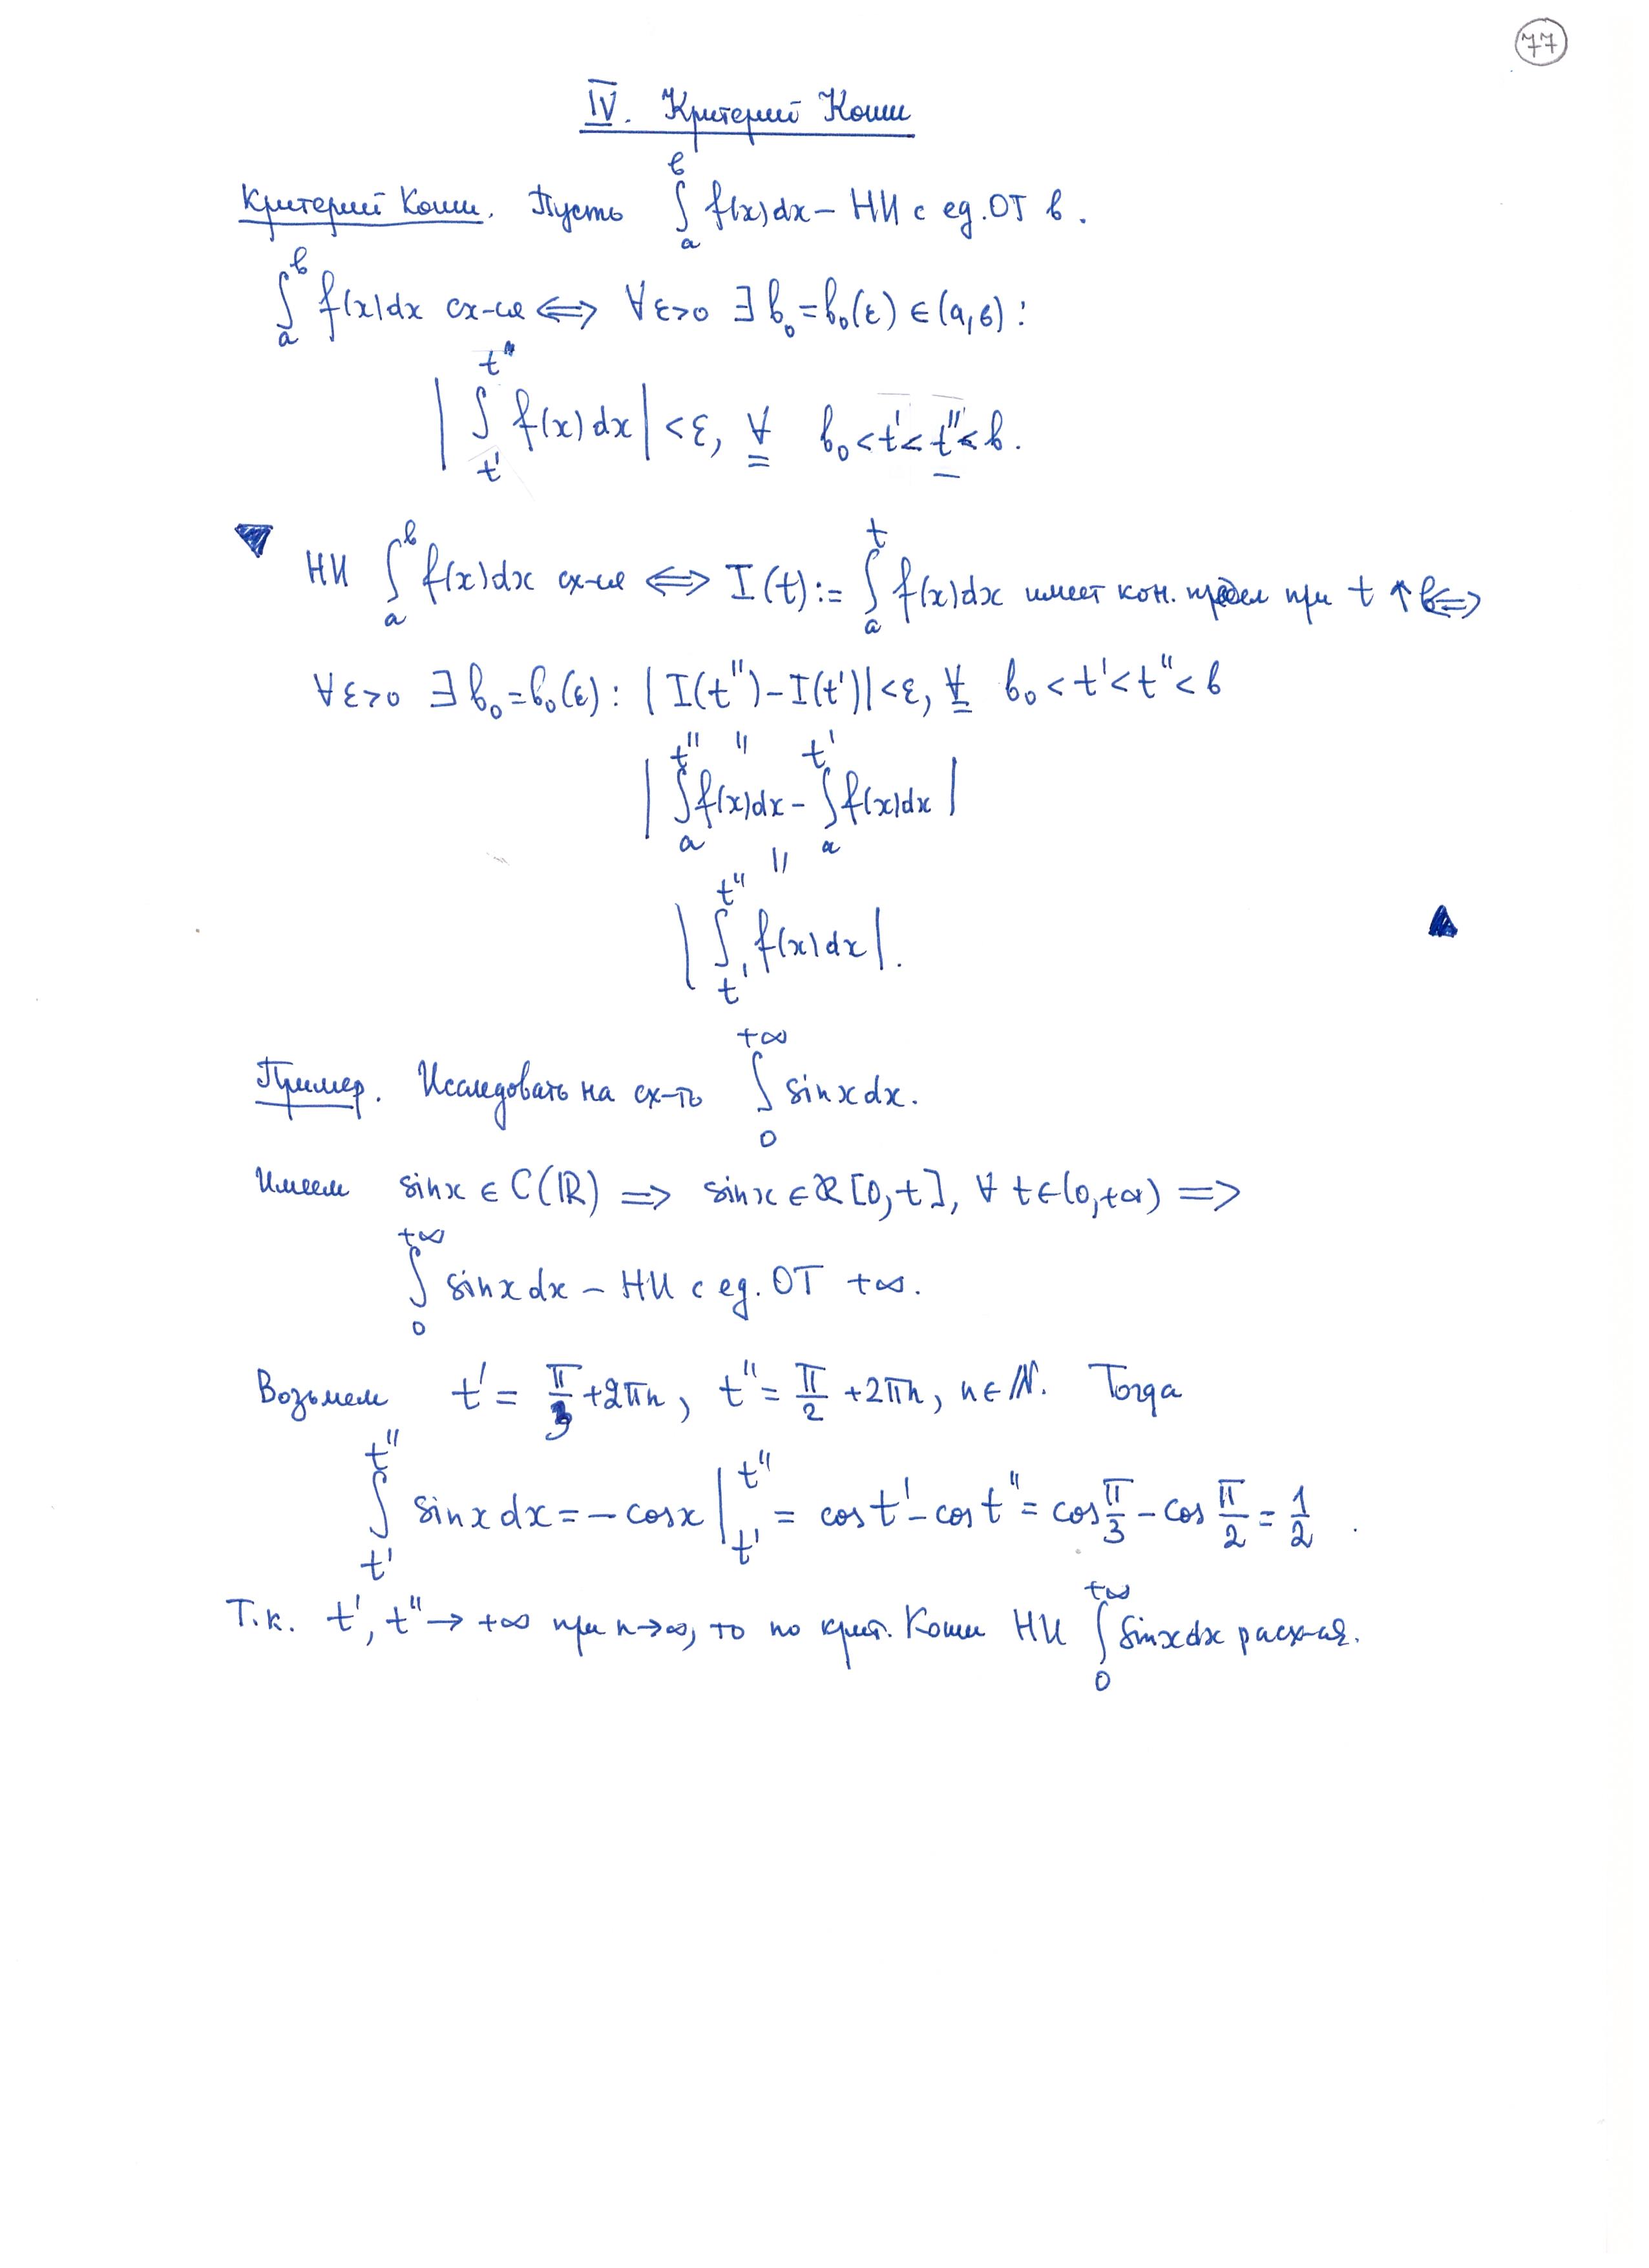 77
IV. Критерий Коши
Критерий Коши. Пусть ∫_a^b f(x)dx – НИ с ед. ОТ b.
∫_a^b f(x)dx сх-ся ⟺ ∀ε>0 ∃ b₀=b₀(ε) ∈ (a,b):
| ∫_{t'}^{t''} f(x)dx | < ε, ∀ b₀<t'<t''<b.
▼ НИ ∫_a^b f(x)dx сх-ся ⟺ I(t):= ∫_a^t f(x)dx имеет кон. предел при t ↑ b ⟺
∀ε>0 ∃ b₀=b₀(ε): | I(t'')–I(t')|<ε, ∀ b₀<t'<t''<b
||
| ∫_a^{t''} f(x)dx – ∫_a^{t'} f(x)dx |
||
| ∫_{t'}^{t''} f(x)dx |. ▲
Пример. Исследовать на сх-ть ∫_0^{+∞} sinx dx.
Имеем sinx ∈ C(ℝ) ⟹ sinx ∈ R[0,t], ∀ t∈(0,+∞) ⟹
∫_0^{+∞} sinx dx – НИ с ед. ОТ +∞.
Возьмем t' = π/3 +2πn, t'' = π/2 +2πn, n∈ℕ. Тогда
∫_{t'}^{t''} sinx dx = – cosx |_{t'}^{t''} = cos t' – cos t'' = cos π/3 – cos π/2 = 1/2.
Т.к. t', t'' → +∞ при n→∞, то по крит. Коши НИ ∫_0^{+∞} sinx dx расх-ся.